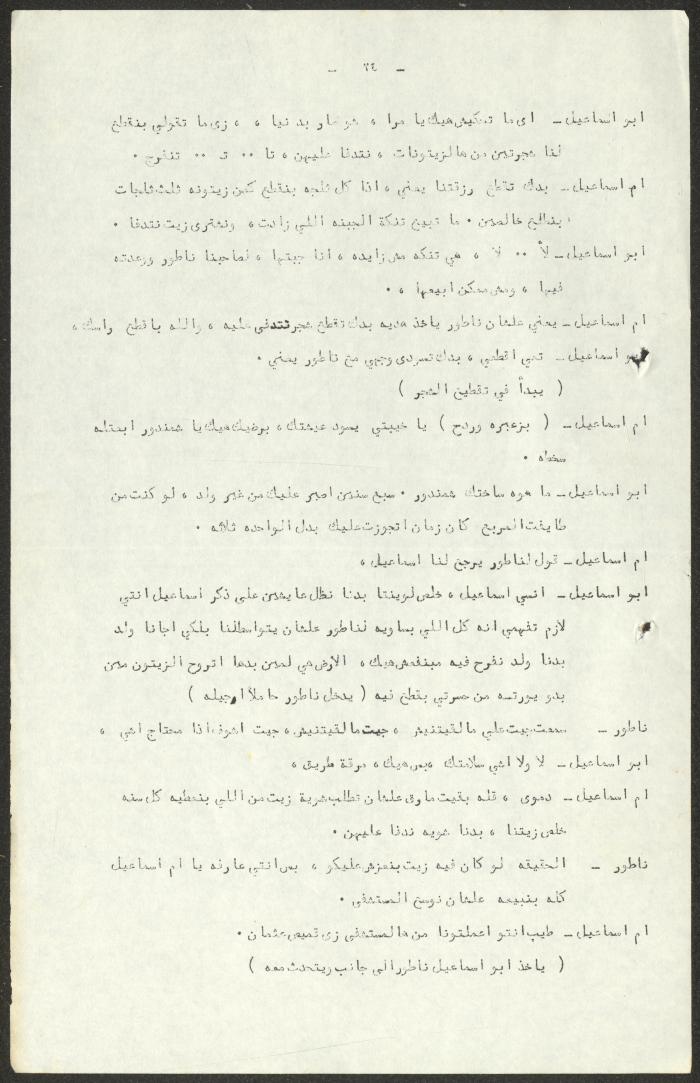 - ٢٤ -
ابو اسماعيل - اى ما تحكيش هيك يا مرا ، هو خار بد نيا ، ، زى ما تقولي بنقطع
لنا شجرتين من هالزيتونات ، نتدفا عليهن ، تا ٠٠ تـ ٠٠ تنفرج ٠
ام اسماعيل - بدك تقطع رزقتنا يعني ، اذا كل ثلجه بنقطع كمن زيتونه ثلث ثلجات
بنطلع خالصين ٠ ما تبيع تنكة الجبنه اللي زادت ، ونشترى زيت نتدفا ٠
ابو اسماعيل - لأ ٠٠ لا ، هي تنكه مش زايده ، انا جبتها ، لصاحبنا ناطور ووعدته
فيها ، ومش ممكن ابيعها ، ٠
ام اسماعيل - يعني علشان ناطور ياخذ هديه بدك تقطع شجر نتدفى عليه ، والله يا قطع راسك ،
ابو اسماعيل - تمي اقطعي ، بدك تسودى وجهي مع ناطور يعني ٠
( يبدأ في تقطيع الشجر )
ام اسماعيل - ( بزعبره وردح ) يا خيبتي يسود عيشتك ، برضيك هيك يا شمندور ابعتله
سخطه ٠
ابو اسماعيل - ما هوه ساختك شمندور ٠ سبع سنين اصبر عليك من غير ولد ، لو كنت من
طايفت المربع كان زمان اتجوزت عليك بدل الواحده ثلاثه ٠
ام اسماعيل - قول لناطور يرجع لنا اسماعيل ،
ابو اسماعيل - انسي اسماعيل ، خلص لوينتا بدنا نظل عايشين على ذكر اسماعيل انتي
لازم تفهمي انه كل اللي بساويه لناطور علشان يتواسطلنا بلكي اجانا ولد
بدنا ولد نفرح فيه مبنفعش هيك ، الارض هي لمين بدها اتروح الزيتون مين
بدو يورثه من حسرتي بقطع فيه ( يدخل ناطور حاملا ارجيله )
ناطور - سمعت جيت علي مالقيتنيش ، جيت مالقيتنيش ، جيت اشوف اذا محتاج اشي ،
ابو اسماعيل - لا ولا اشي سلامتك ، بس هيك ، مرقة طريق ،
ام اسماعيل - دموى ، قله بقيت مارق علشان تطلب شوية زيت من اللي بنعطيه كل سنه
خلص زيتنا ، بدنا شويه ندنا عليهن ٠
ناطور - الحقيقه لو كان فيه زيت بنعزش عليكو ، بس انتي عارفه يا ام اسماعيل
كله بنبيعه علشان نوسع المستشفى ٠
ام اسماعيل - طيب انتو اعملتونا من هالمستشفى زى قميص عثمان ٠
( ياخذ ابو اسماعيل ناطور الى جانب ويتحدث معه )